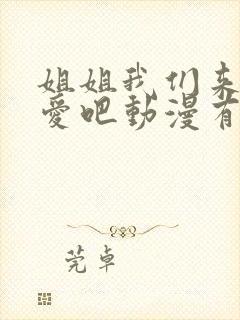 姐姐我们来
爱吧動漫有
莞卓